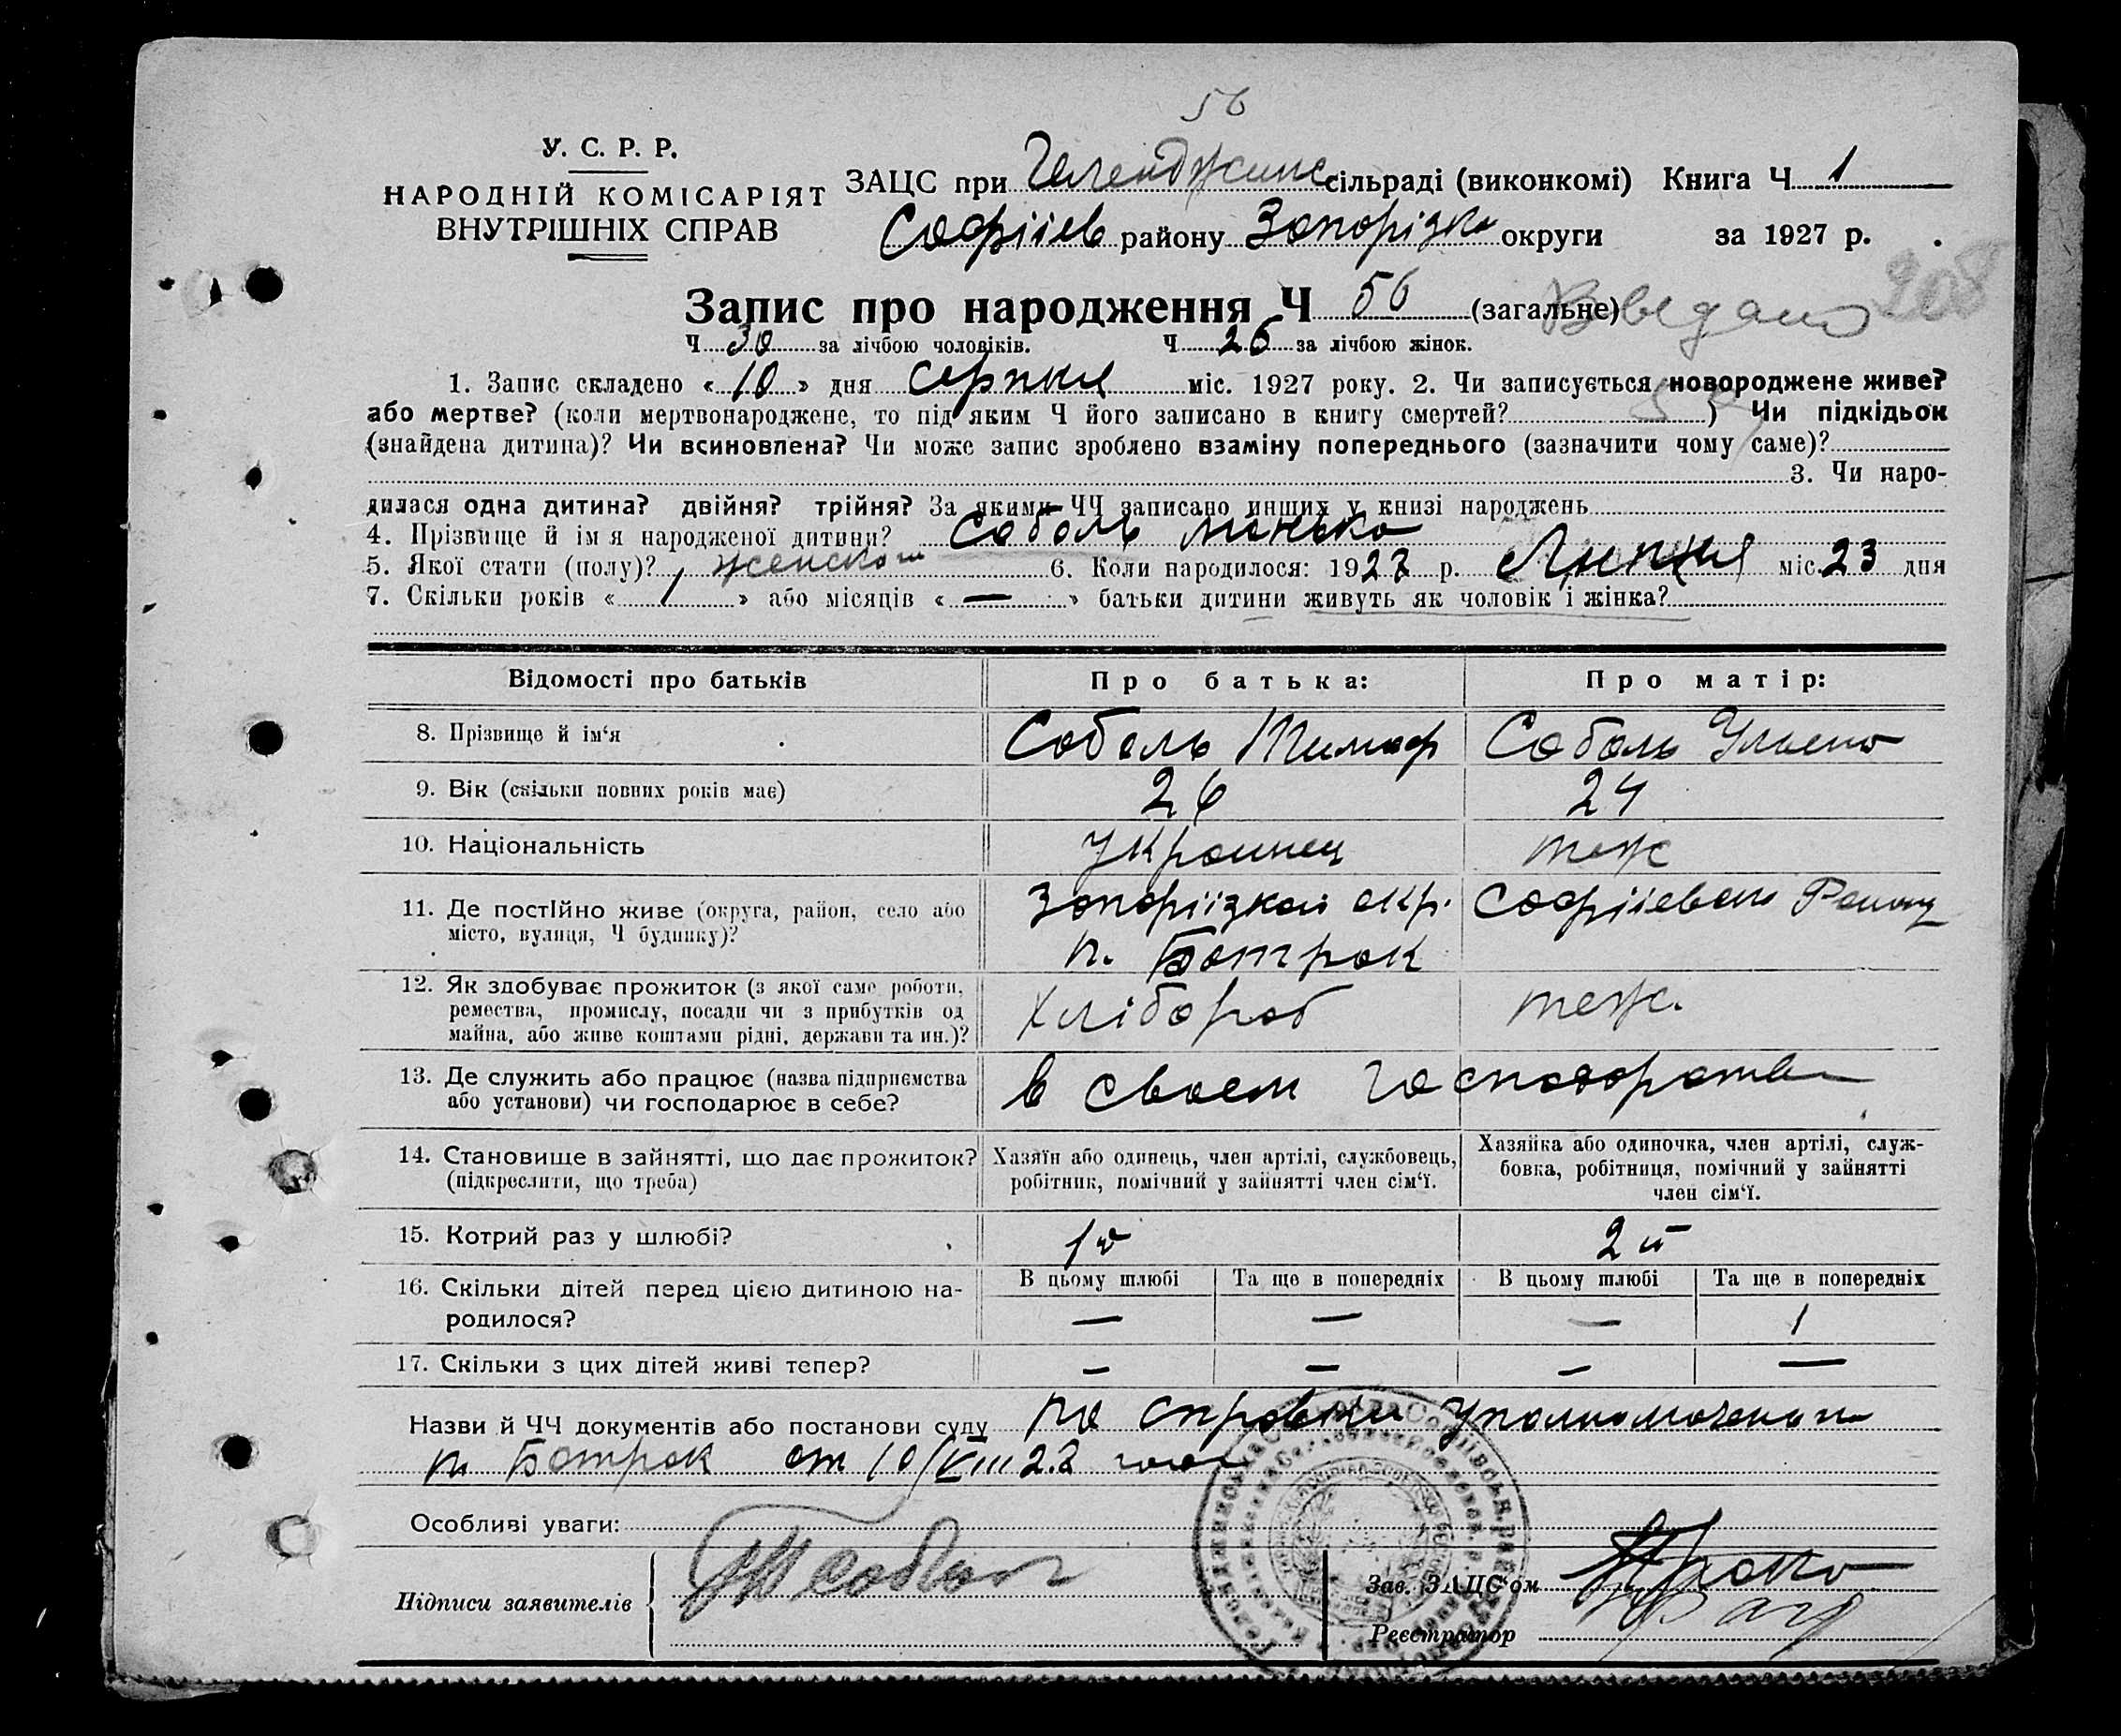 56
У. С. Р. Р.
НАРОДНІЙ КОМІСАРІЯТ
ВНУТРІШНІХ СПРАВ
ЗАЦС при сільраді (виконкомі) Книга Ч 1
Софііев району Запорізка округи за 1927 р.
Запис про народження Ч 56 (загальне) 208
Ч 30 за лічбою чоловіків. Ч 26 за лічбою жінок.
1. Запис складено « 10 » дня серпня міс. 1927 року. 2. Чи записується новороджене живе?
або мертве? (коли мертвонароджене, то під яким Ч його записано в книгу смертей? ) Чи підкідьок
(знайдена дитина)? Чи всиновлена? Чи може запис зроблено взаміну попереднього (зазначити чому саме)?
3. Чи наро-
дилася одна дитина? двійня? трійня? За якими ЧЧ записано инших у книзі народжень
4. Прізвище й ім я народженої дитини? Соболь
5. Якої стати (полу)? женской 6. Коли народилося: 1927 р. Липня міс. 23 дня
7. Скільки років « 1 » або місяців « — » батьки дитини живуть як чоловік і жінка?
Відомості про батьків Про батька: Про матір:
8. Прізвище й ім‘я Соболь Тимоф Соболь Ульяна
9. Вік (скільки повних років має) 26 24
10. Національність Украинец теж
11. Де постійно живе (округа, район, село або Запоріізкой окр. Софііевсой Району
місто, вулиця, Ч будинку)? п. Ботрак
12. Як здобуває прожиток (з якої саме роботи, Хлібороб теж.
ремества, промислу, посади чи з прибутків од
майна, або живе коштами рідні, держави та ин.)?
13. Де служить або працює (назва підприємства в своем господарстве
або установи) чи господарює в себе?
14. Становище в зайнятті, що дає прожиток? Хазяїн або одинець, член артілі, службовець, Хазяйка або одиночка, член артілі, служ-
(підкреслити, що треба) робітник, помічний у зайнятті член сім‘ї. бовка, робітниця, помічний у зайнятті
член сім‘ї.
15. Котрий раз у шлюбі? 1й 2й
16. Скільки дітей перед цією дитиною на- В цьому шлюбі Та ще в попередніх В цьому шлюбі Та ще в попередніх
родилося? — — — 1
17. Скільки з цих дітей живі тепер? — — — —
Назви й ЧЧ документів або постанови суду по справки уполномоченого
п. Ботрак от 10/VIII 27 года
Особливі уваги:
Підписи заявителів Т Соболь Зав. ЗАЦС‘ом
Реєстратор